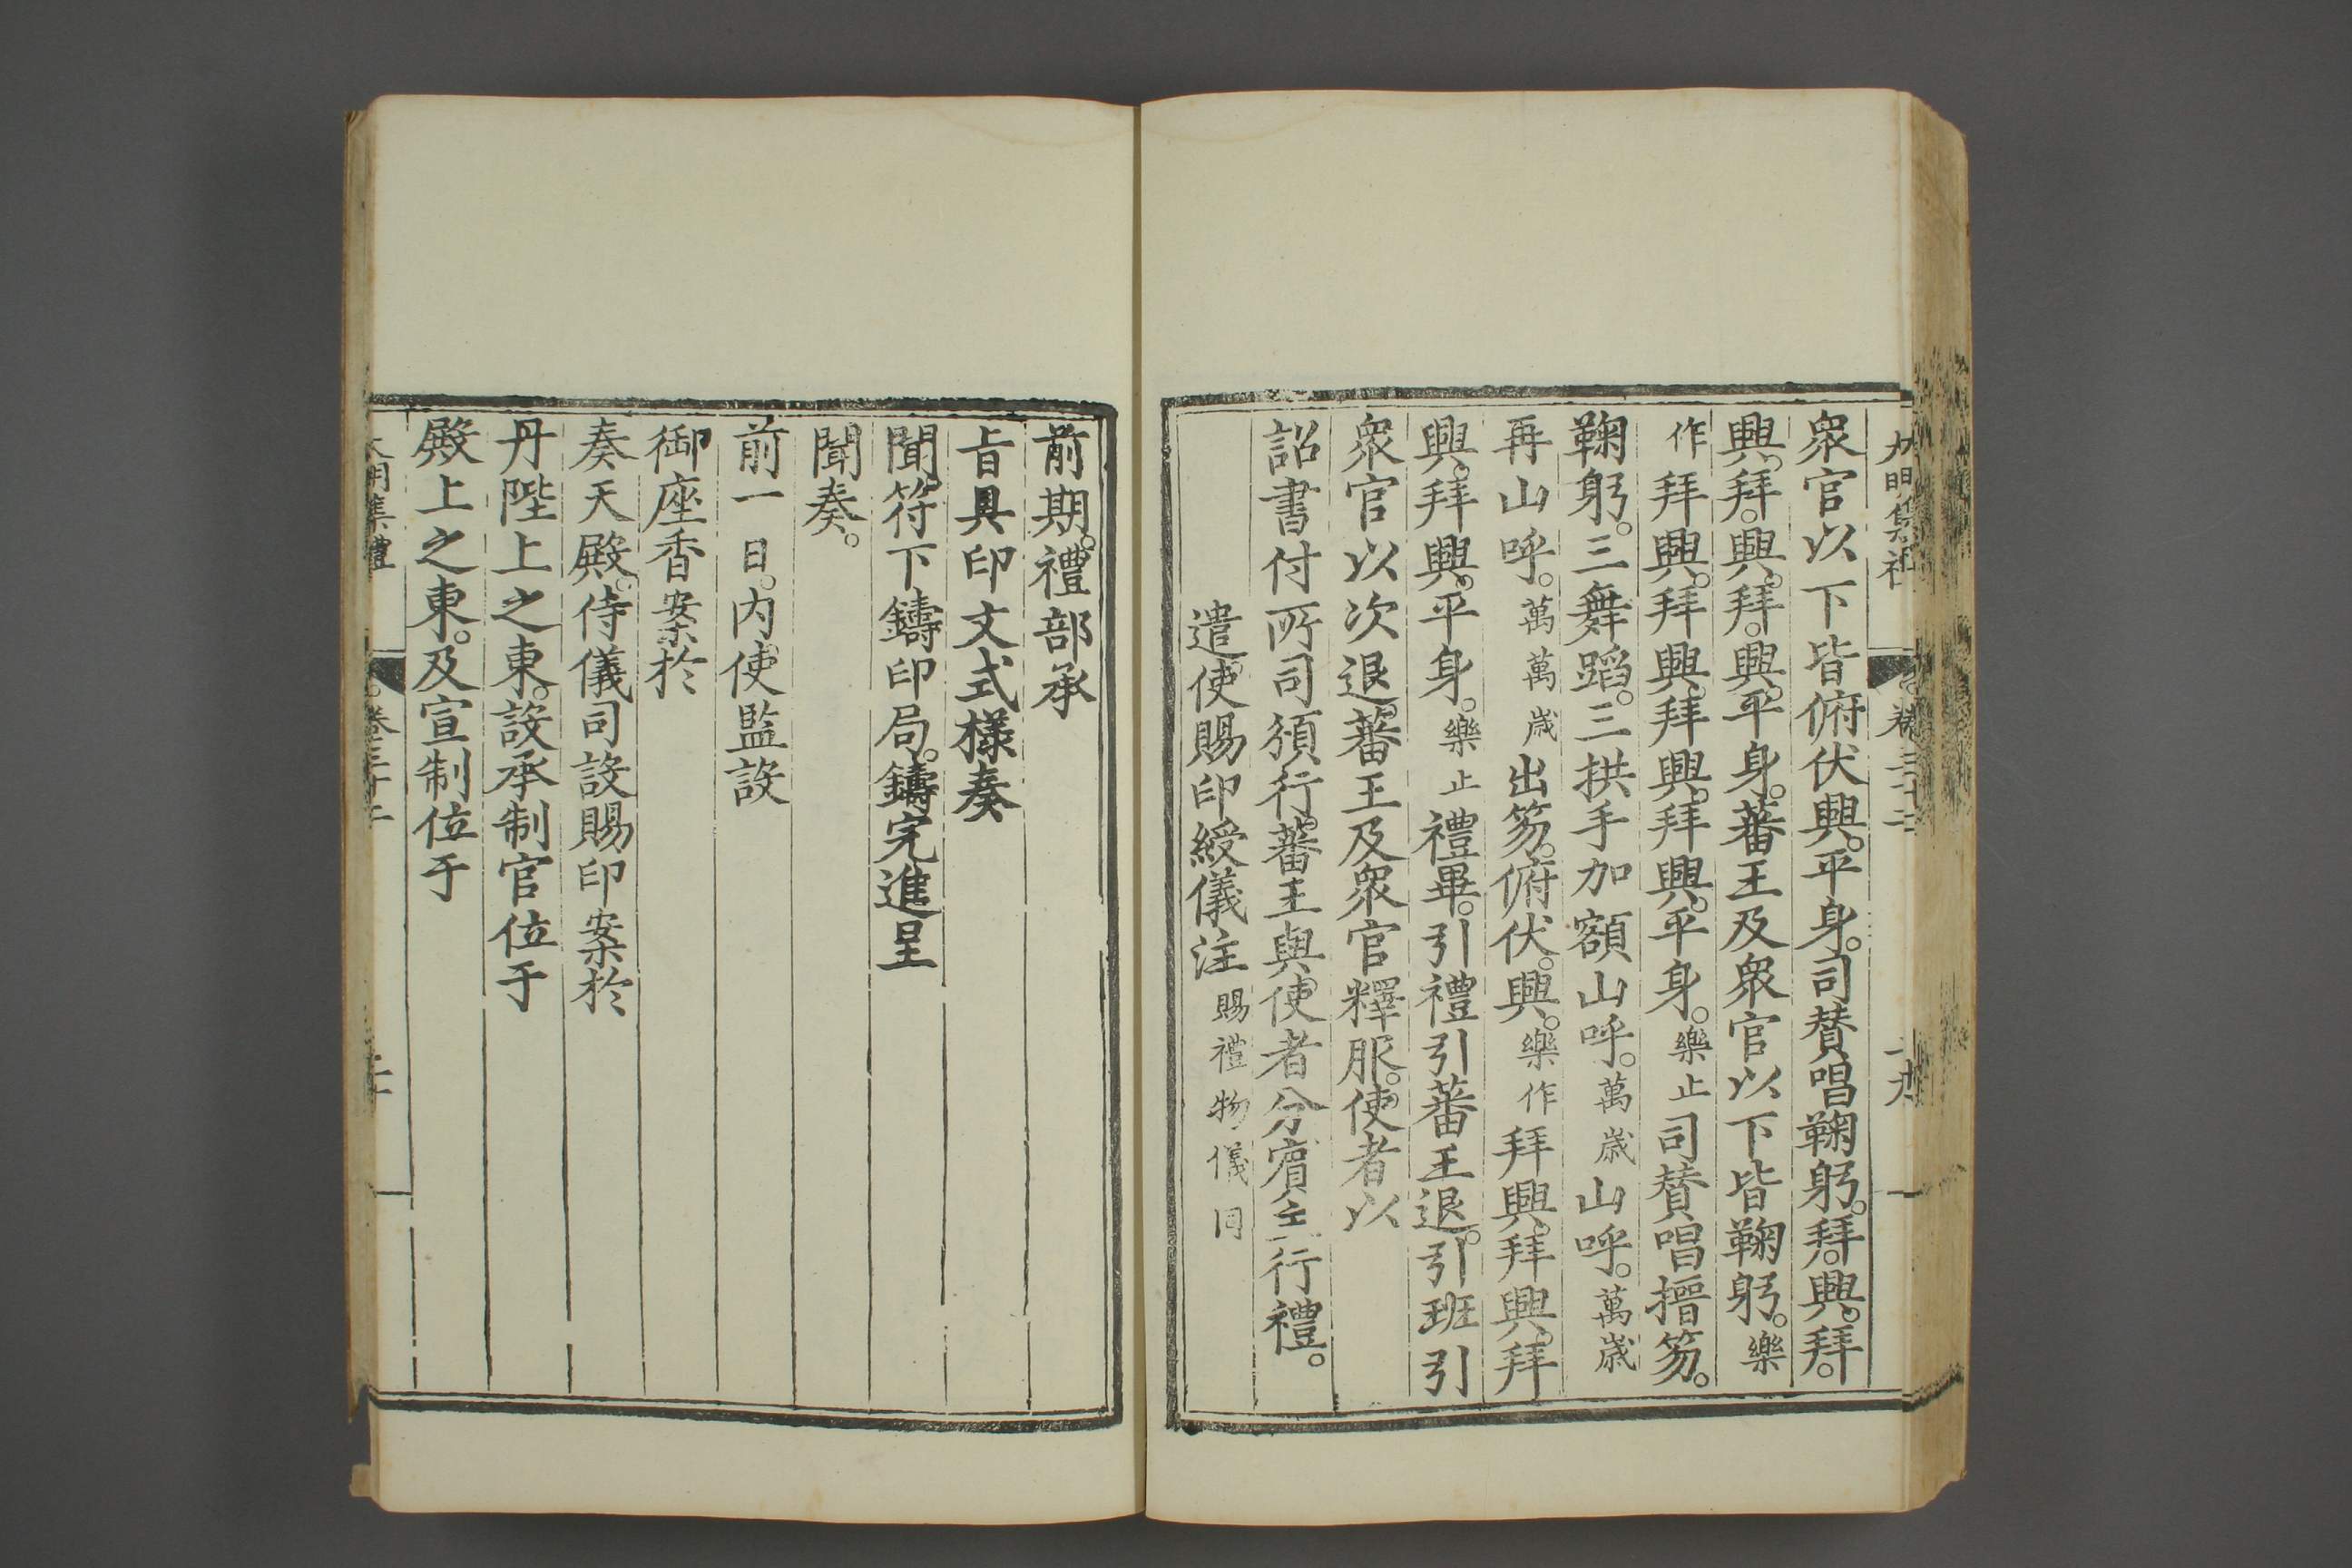 大明集禮 卷三十二
衆官以下皆俯伏興。平身。司贊唱鞠躬。拜。興。拜。
興。拜。興。拜。興。平身。蕃王及衆官以下皆鞠躬。樂
作拜興。拜興。拜興。拜興。平身。樂止司贊唱搢笏。
鞠躬。三舞蹈。三拱手加額山呼。萬歲山呼。萬歲
再山呼。萬萬歲出笏。俯伏。興。樂作拜興。拜興。拜
興。拜興。平身。樂止禮畢。引禮引蕃王退。引班引
衆官以次退。蕃王及衆官釋服。使者以
詔書付所司頒行。蕃王與使者分賓主行禮。
遣使賜印綬儀注賜禮物儀同
前期。禮部承
旨具印文式樣奏
聞。符下鑄印局。鑄完進呈
聞奏。
前一日。內使監設
御座香案於
奏天殿。侍儀司設賜印案於
丹陛上之東。設承制官位于
殿上之東。及宣制位于
大明集禮 卷三十二